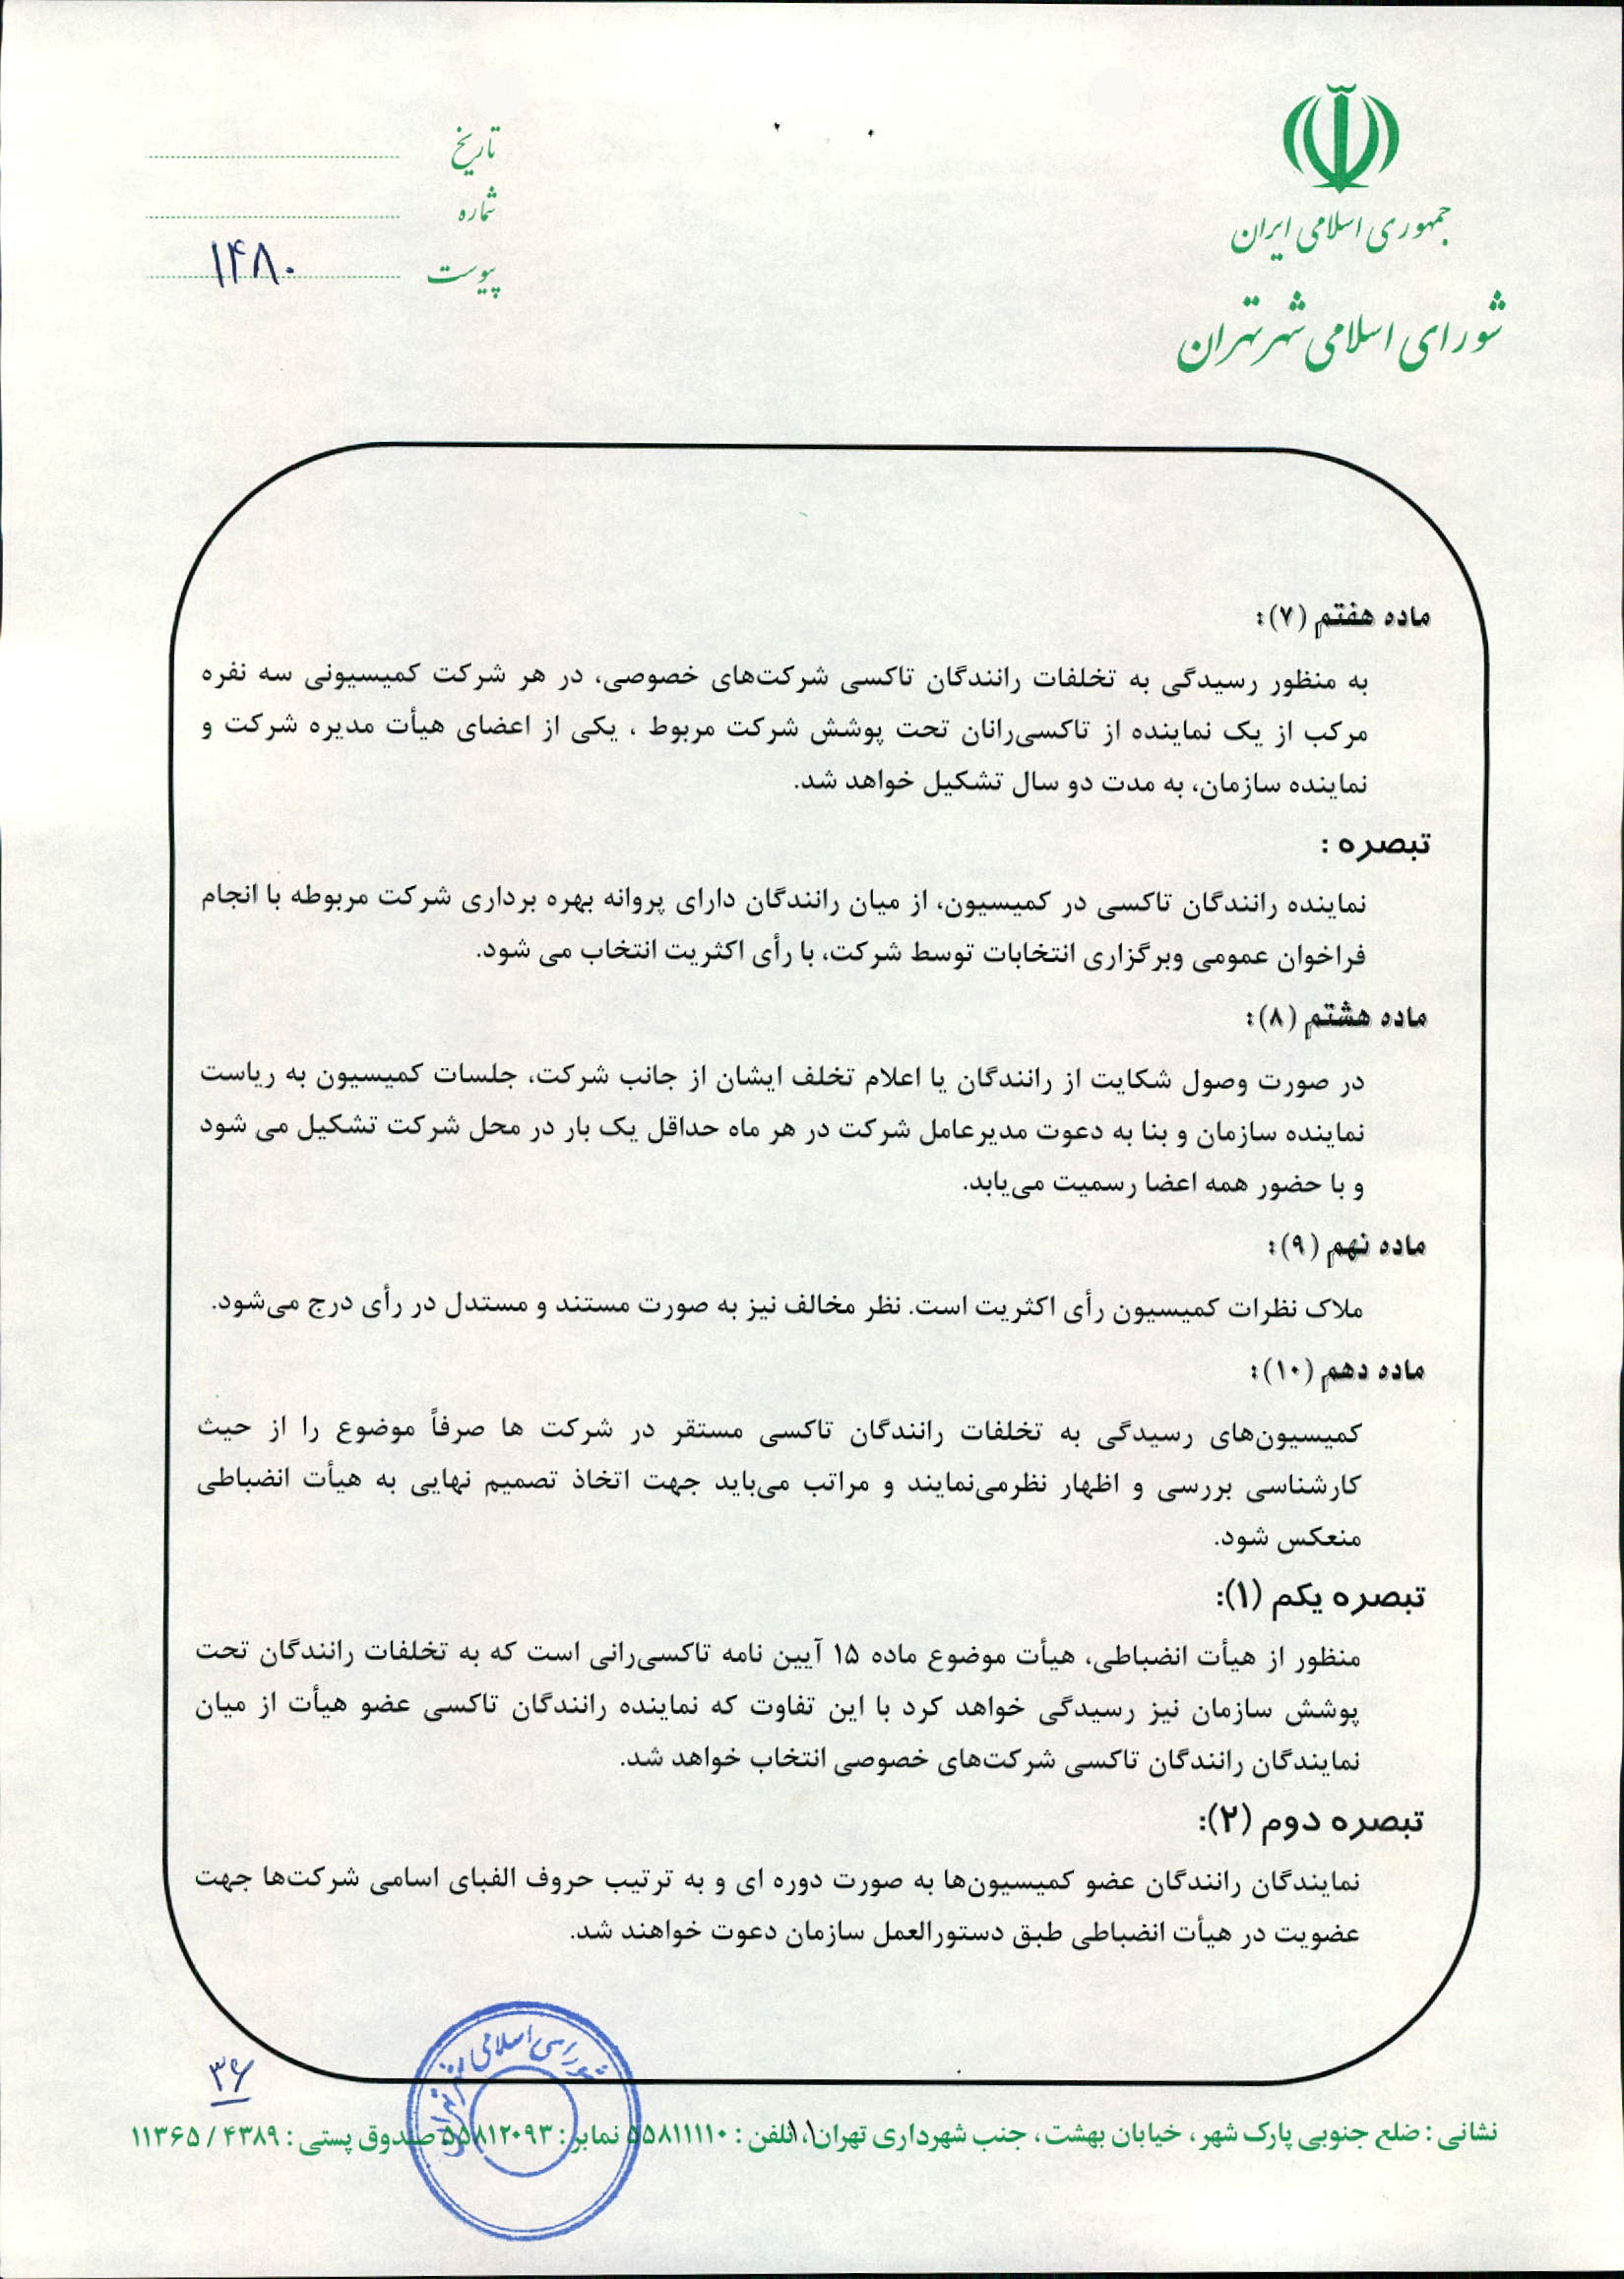 جمهوری اسلامی ایران
شورای اسلامی شهر تهران
تاریخ
شماره
پیوست ۱۴۸۰
ماده هفتم (۷):
به منظور رسیدگی به تخلفات رانندگان تاکسی شرکت‌های خصوصی، در هر شرکت کمیسیونی سه نفره
مرکب از یک نماینده از تاکسی‌رانان تحت پوشش شرکت مربوط ، یکی از اعضای هیأت مدیره شرکت و
نماینده سازمان، به مدت دو سال تشکیل خواهد شد.
تبصره :
نماینده رانندگان تاکسی در کمیسیون، از میان رانندگان دارای پروانه بهره برداری شرکت مربوطه با انجام
فراخوان عمومی وبرگزاری انتخابات توسط شرکت، با رأی اکثریت انتخاب می شود.
ماده هشتم (۸):
در صورت وصول شکایت از رانندگان یا اعلام تخلف ایشان از جانب شرکت، جلسات کمیسیون به ریاست
نماینده سازمان و بنا به دعوت مدیرعامل شرکت در هر ماه حداقل یک بار در محل شرکت تشکیل می شود
و با حضور همه اعضا رسمیت می‌یابد.
ماده نهم (۹):
ملاک نظرات کمیسیون رأی اکثریت است. نظر مخالف نیز به صورت مستند و مستدل در رأی درج می‌شود.
ماده دهم (۱۰):
کمیسیون‌های رسیدگی به تخلفات رانندگان تاکسی مستقر در شرکت ها صرفاً موضوع را از حیث
کارشناسی بررسی و اظهار نظرمی‌نمایند و مراتب می‌باید جهت اتخاذ تصمیم نهایی به هیأت انضباطی
منعکس شود.
تبصره یکم (۱):
منظور از هیأت انضباطی، هیأت موضوع ماده ۱۵ آیین نامه تاکسی‌رانی است که به تخلفات رانندگان تحت
پوشش سازمان نیز رسیدگی خواهد کرد با این تفاوت که نماینده رانندگان تاکسی عضو هیأت از میان
نمایندگان رانندگان تاکسی شرکت‌های خصوصی انتخاب خواهد شد.
تبصره دوم (۲):
نمایندگان رانندگان عضو کمیسیون‌ها به صورت دوره ای و به ترتیب حروف الفبای اسامی شرکت‌ها جهت
عضویت در هیأت انضباطی طبق دستورالعمل سازمان دعوت خواهند شد.
شورای اسلامی شهر تهران
۳۶
۱۱
نشانی : ضلع جنوبی پارک شهر ، خیابان بهشت ، جنب شهرداری تهران، تلفن : ۵۵۸۱۱۱۱۰ نمابر : ۵۵۸۱۲۰۹۳ صندوق پستی : ۴۳۸۹ / ۱۱۳۶۵